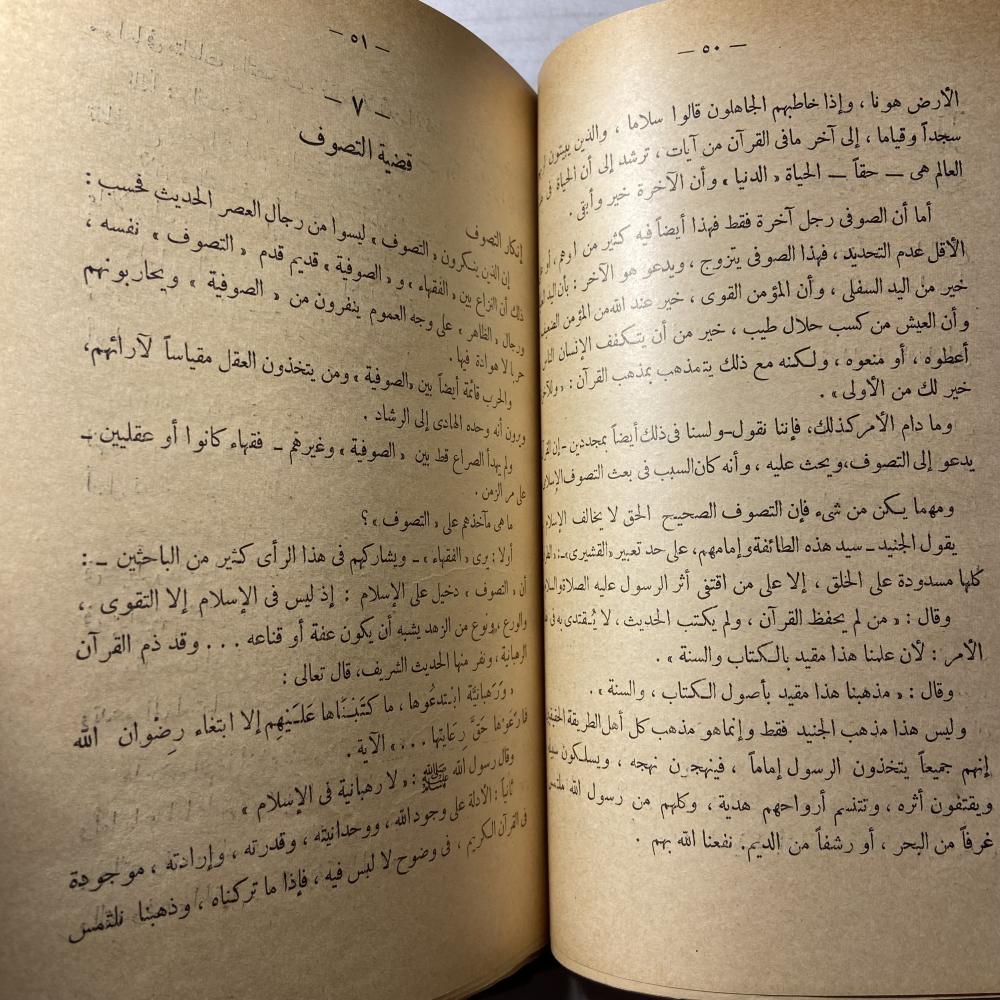 — ٥٠ —
الأرض هونا ، وإذا خاطبهم الجاهلون قالوا سلاما ، والذين يبيتون
سجداً وقياما ، إلى آخر مافى القرآن من آيات ، ترشد إلى أن الحياة فى
العالم هى — حقاً — الحياة « الدنيا » وأن الآخرة خير وأبقى .
أما أن الصوفى رجل آخرة فقط فهذا أيضاً فيه كثير من
الأقل عدم التحديد ، فهذا الصوفى يتزوج ، ويدعو هو الآخر : بأن اليد
خير من اليد السفلى ، وأن المؤمن القوى ، خير عند الله من المؤمن
وأن العيش من كسب حلال طيب ، خير من أن يتكفف الإنسان
أعطوه ، أو منعوه ، ولكنه مع ذلك يتمذهب بمذهب القرآن :
خير لك من الأولى » .
وما دام الأمر كذلك ، فإننا نقول ــ ولسنا فى ذلك أيضاً بمجددين ــ إن
يدعو إلى التصوف ، ويحث عليه ، وأنه كان السبب فى بعث التصوف
ومهما يكن من شىء فإن التصوف الصحيح الحق لا يخالف
يقول الجنيد ــ سيد هذه الطائفة وإمامهم ، على حد تعبير « القشيرى » ــ :
كلها مسدودة على الخلق ، إلا على من اقتفى أثر الرسول عليه الصلاة
وقال : « من لم يحفظ القرآن ، ولم يكتب الحديث ، لا يُقتدى به فى
الأمر : لأن علمنا هذا مقيد بالكتاب والسنة » .
وقال : « مذهبنا هذا مقيد بأصول الكتاب ، والسنة » .
وليس هذا مذهب الجنيد فقط وإنما هو مذهب كل أهل الطريقة
إنهم جميعاً يتخذون الرسول إماماً ، فينهجون نهجه ، ويسلكون
ويقتفون أثره ، وتتسم أرواحهم هدية ، وكلهم من رسول الله
غرفاً من البحر ، أو رشفاً من الديم . نفعنا الله بهم .
— ٥١ —
— ٧ —
قضية التصوف
إنكار التصوف
إن الذين ينكرون « التصوف » ليسوا من رجال العصر الحديث فحسب :
ذلك أن النزاع بين « الفقهاء » و « الصوفية » قديم قدم « التصوف » نفسه ،
ورجال « الظاهر » على وجه العموم ينفرون من « الصوفية » ويحاربونهم
حربا لا هوادة فيها .
والحرب قائمة أيضاً بين « الصوفية » ومن يتخذون العقل مقياساً لآرائهم ،
ويرون أنه وحده الهادى إلى الرشاد .
ولم يهدأ الصراع قط بين « الصوفية » وغيرهم ــ فقهاء كانوا أو عقليين ــ
على مر الزمن .
ما هى مآخذهم على « التصوف » ؟
أولا : يرى « الفقهاء » ــ ويشاركهم فى هذا الرأى كثير من الباحثين ــ :
أن « التصوف » دخيل على الإسلام : إذ ليس فى الإسلام إلا التقوى ،
والورع ، ونوع من الزهد يشبه أن يكون عفة أو قناعه ... وقد ذم القرآن
الرهبانية ، ونفر منها الحديث الشريف ، قال تعالى :
« وَرَهبانيَّة ابْتدعُوها ، ما كتَبْنَاها عَلَيْهِم إلا ابتغاء رِضْوان الله
فارَعَوْها حَقَّ رِعَايتها ... » الآية .
وقال رسول الله ﷺ : « لا رهبانية فى الإسلام »
ثانياً : الأدلة على وجود الله ، ووحدانيته ، وقدرته ، وإرادته ، موجودة
فى القرآن الكريم ، فى وضوح لا لبس فيه ، فإذا ما تركناه ، وذهبنا نلتمس